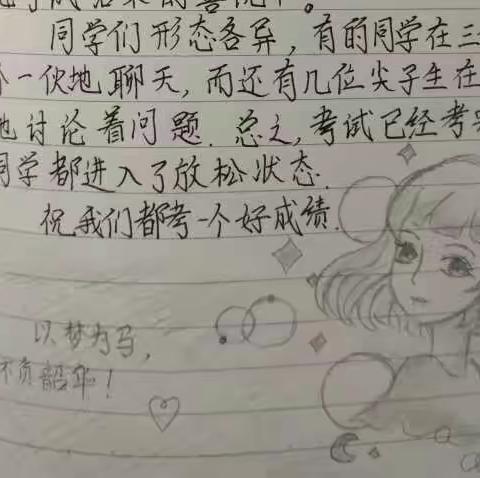 成后来的喜悦。
同学们形态各异，有的同学在三
一伙地聊天，而还有几位尖子生在
地讨论着问题．总之，考试已经考完
同学都进入了放松状态．
祝我们都考一个好成绩．
以梦为马，
不负韶华！